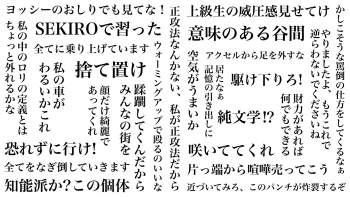 ヨッシーのおしりでも見てな!
SEKIROで習った
全てに乗り上げています
私の中のロリの定義とは
ちょっと外れるかな
捨て置け!
私の車が
わるいかこれ
顔だけ綺麗で
あってくれ
蹂躙してくんだから
みんなの街を
ウォーミングアップで殴るのいいな
正攻法なんかない、私が正攻法だから
恐れずに行け!
全てをなぎ倒していきます
知能派か?この個体
上級生の威圧感見せてけ
意味のある谷間
アクセルから足を外すな
居たなぁ
記憶の引き出しに
空気がうまいか
駆け下りろ!
純文学!?
財力があれば
何でもできる
咲いててくれ
片っ端から喧嘩売ってこう
近づいてみろ、このパンチが炸裂するぞ
かしこそうな罵倒の仕方をしてくるなぁ
やりましたよ、もうこれで
逆らわないでくださいね